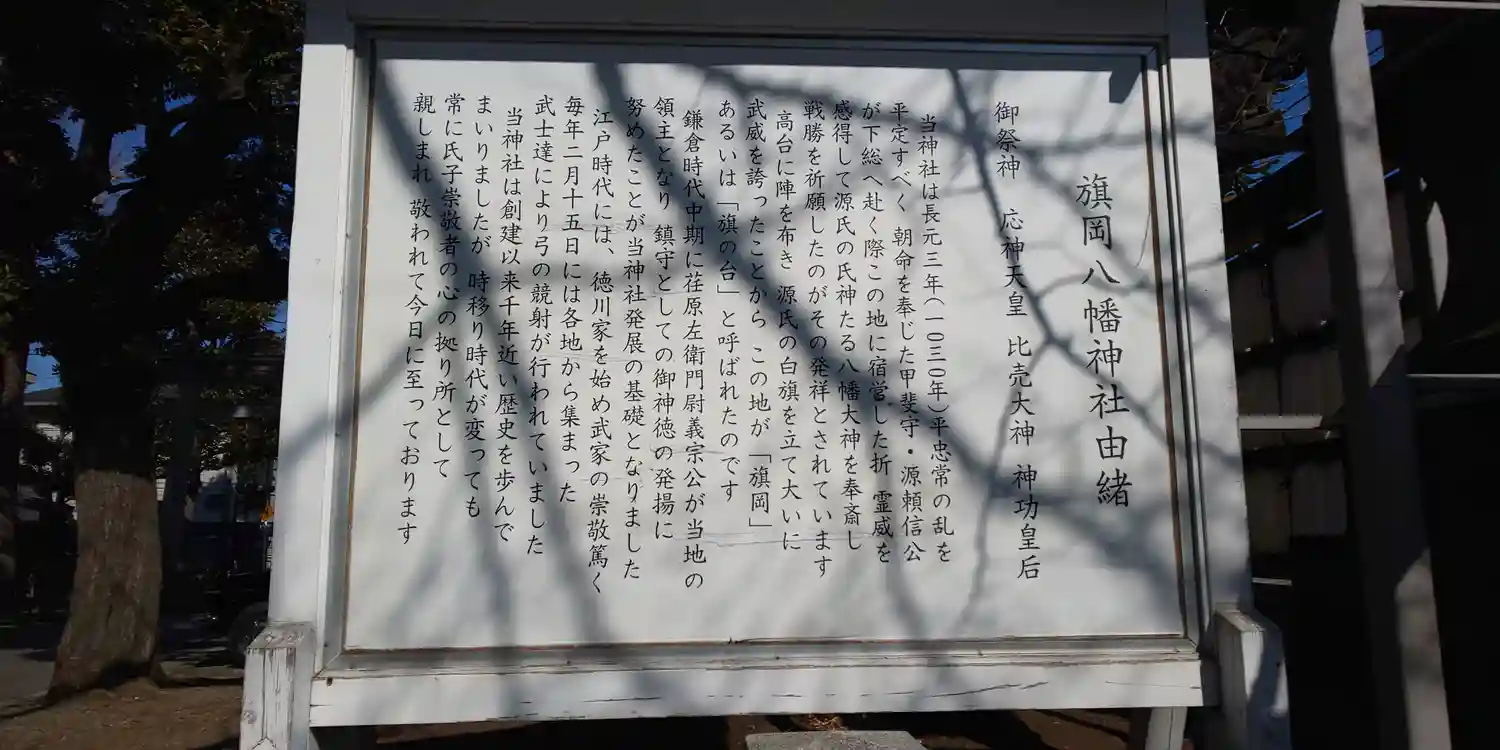 旗岡八幡神社由緒
御祭神　応神天皇　比売大神　神功皇后
当神社は長元三年(一〇三〇年)平忠常の乱を
平定すべく　朝命を奉じた甲斐守・源頼信公
が下総へ赴く際この地に宿営した折　霊威を
感得して源氏の氏神たる八幡大神を奉斎し
戦勝を祈願したのがその発祥とされています
高台に陣を布き　源氏の白旗を立て大いに
武威を誇ったことから　この地が「旗岡」
あるいは「旗の台」と呼ばれたのです
鎌倉時代中期に荏原左衛門尉義宗公が当地の
領主となり　鎮守としての御神徳の発揚に
努めたことが当神社発展の基礎となりました
江戸時代には、徳川家を始め武家の崇敬篤く
毎年二月十五日には各地から集まった
武士達により弓の競射が行われていました
当神社は創建以来千年近い歴史を歩んで
まいりましたが　時移り時代が変っても
常に氏子崇敬者の心の拠り所として
親しまれ　敬われて今日に至っております